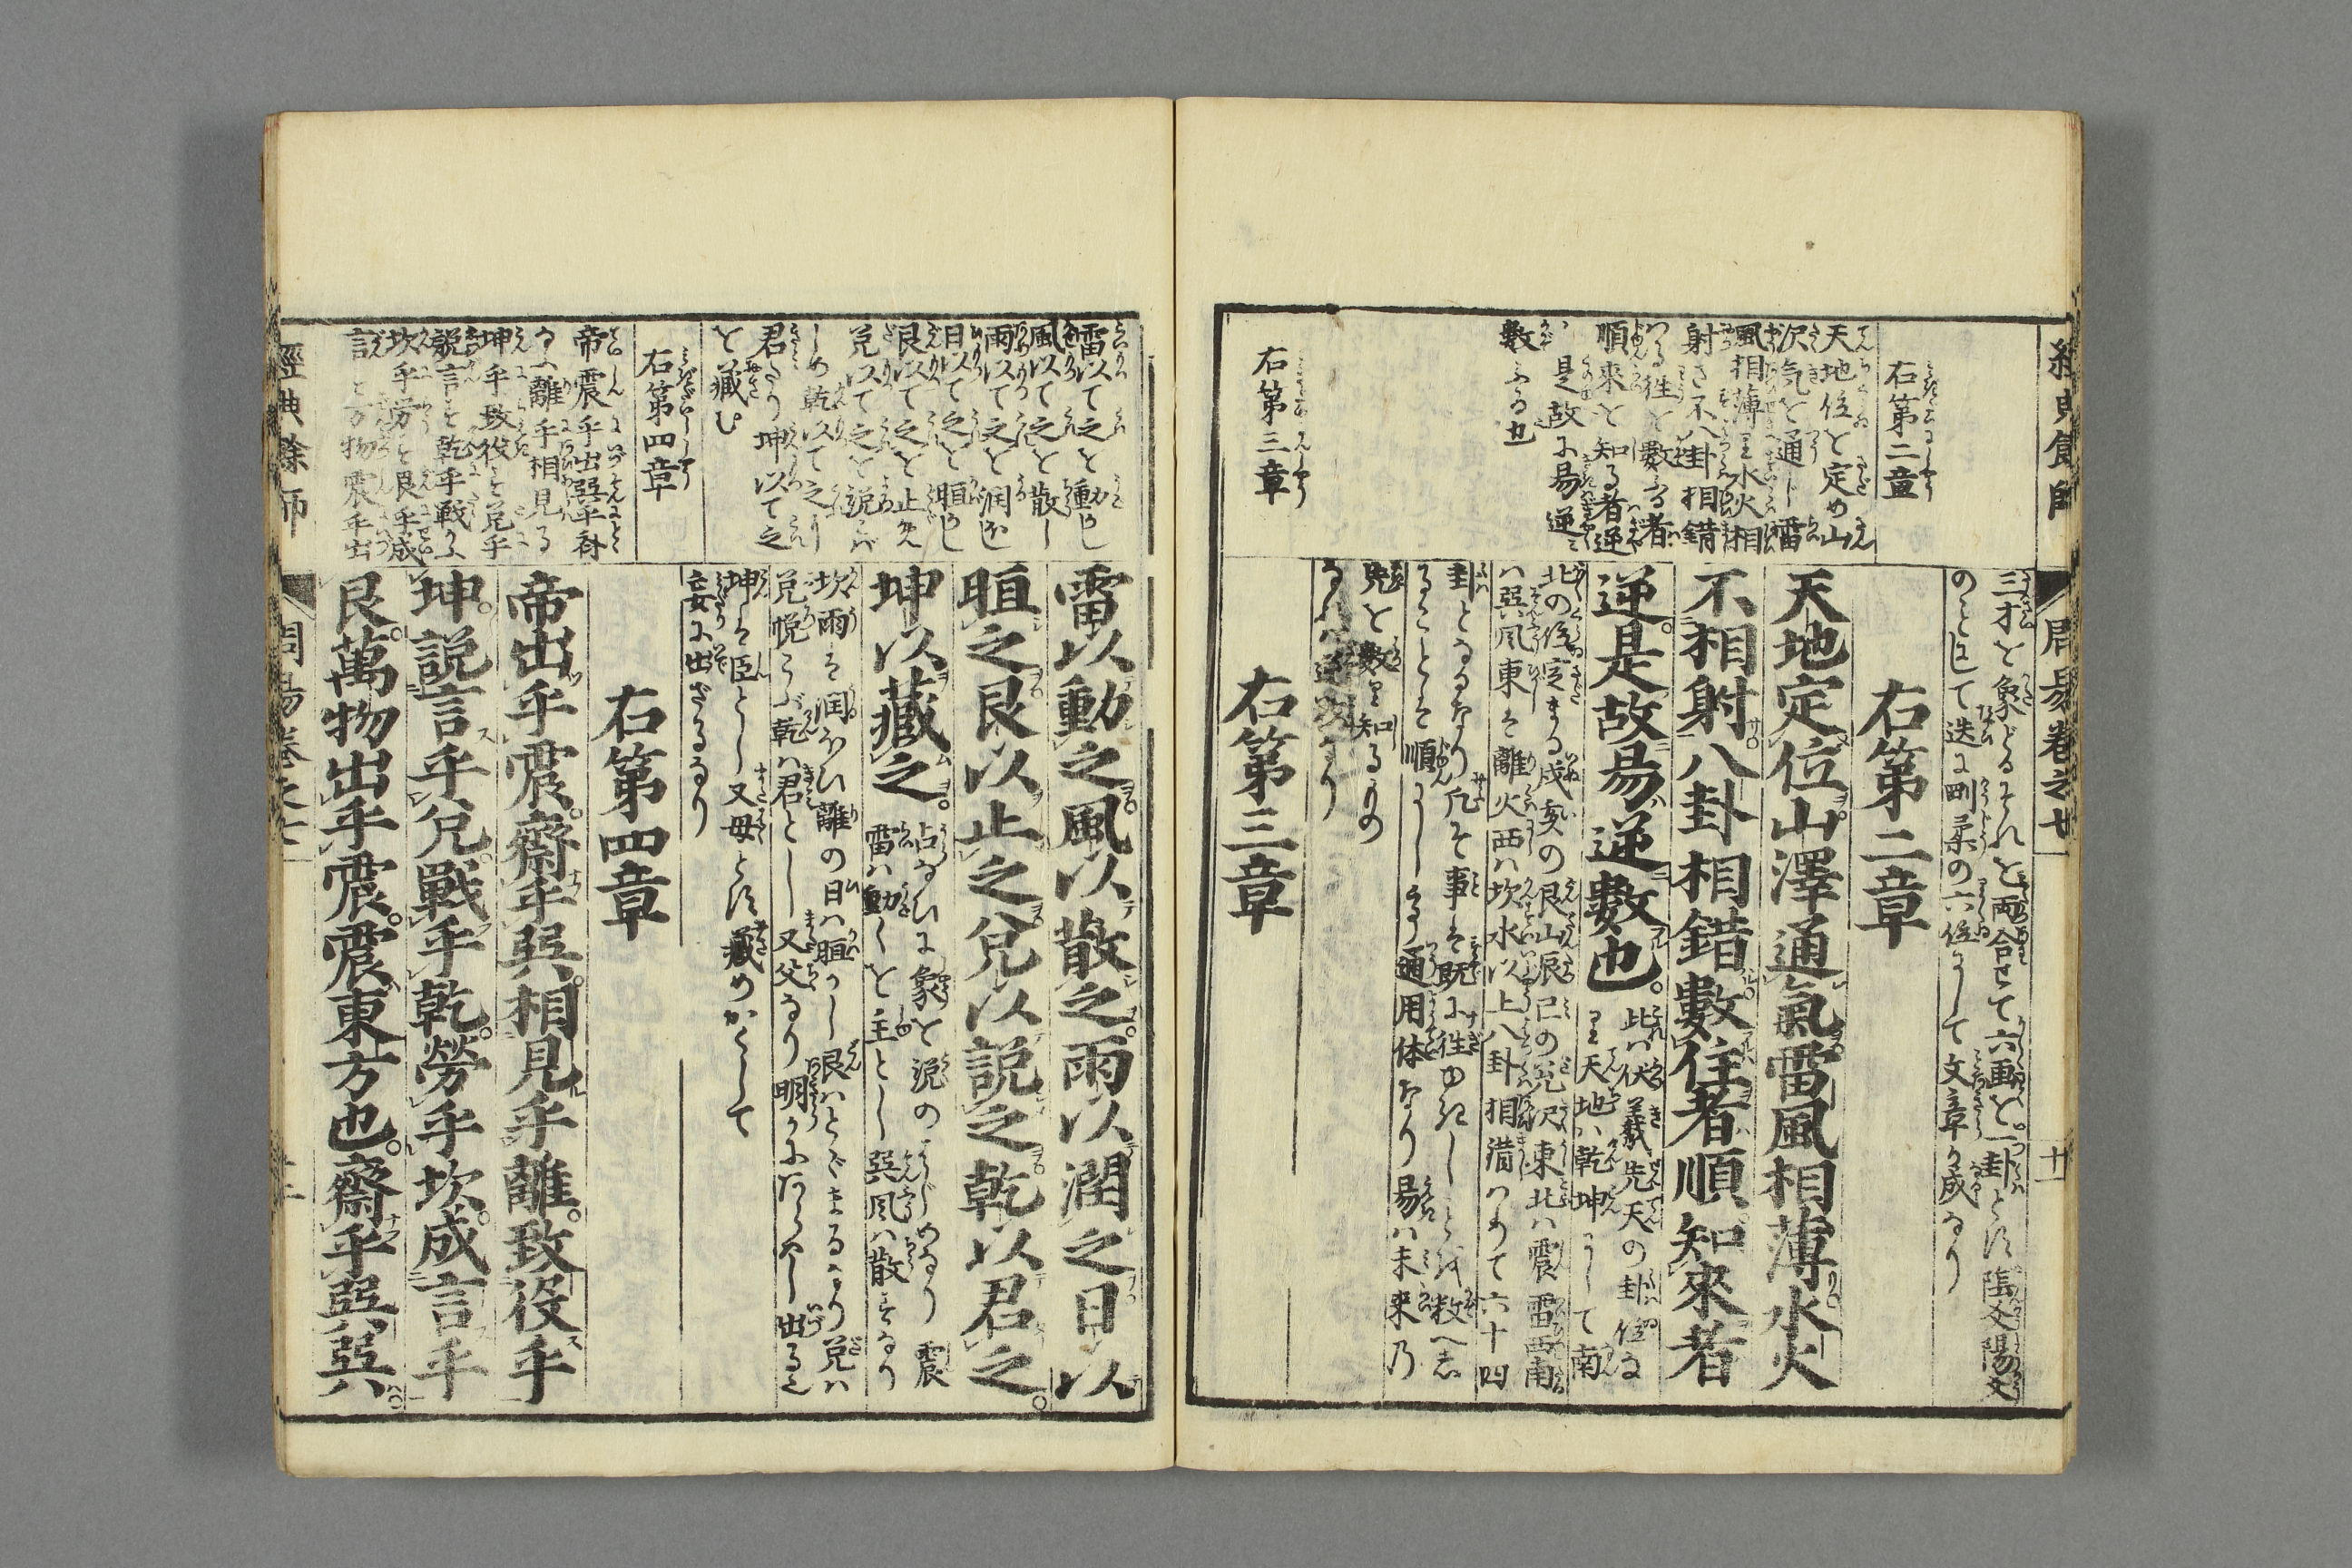 周易卷之七
十一
右第二章
天地位を定め山
沢気を通じ雷
風相薄り水火相
射さ不八卦相錯
る往を數ふる者
順來を知る者逆
是故に易逆
數ふる也
右第三章
三才を象どるそれを両合せて六画を一卦とす陰爻陽爻
のとして迭に剛柔の六位にして文章を成なり
右第二章
天地定位山澤通氣雷風相薄水火
不相射八卦相錯數往者順知來者
逆是故易逆數也
此は伏羲先天の卦位な
り天地は乾坤にして南
北の位定まる戌亥の艮山辰巳の兌沢東北は震雷西南
は巽風東は離火西は坎水以上八卦相潸りて六十四
卦となるなり
るを順
通用体なり易は未来乃
兆を數り知るもの
右第三章
雷以て之を動かし
風以て之を散し
雨以て之を潤し
日以て之を晅かし
艮以て之を止
兌以て之を説ば
しめ乾以て之
君たり坤以て之
を藏む
右第四章
帝震乎出巽乎齊
離乎相見る
坤乎致役を兌乎
説言を乾乎戰
坎乎労を艮乎成
言を万物震乎出
雷以動之風以散之雨以潤之日以
晅之艮以止之兌以説之乾以君之
坤以藏之
占ひに象を説のはじめなり震
雷は動くを主とし巽風は散るなり
坎雨は潤ほひ離の日は晅かし艮はとゞまるなり兌は
兌悦ぶ乾は君とし又父なり明
坤は臣とし又母とす藏めかくして
妄に出ざるなり
右第四章
帝出乎震齋乎巽相見乎離致役乎
坤説言乎兌戰乎乾勞乎坎成言乎
艮萬物出乎震震東方也齋乎巽巽
經典餘師
周易卷之七